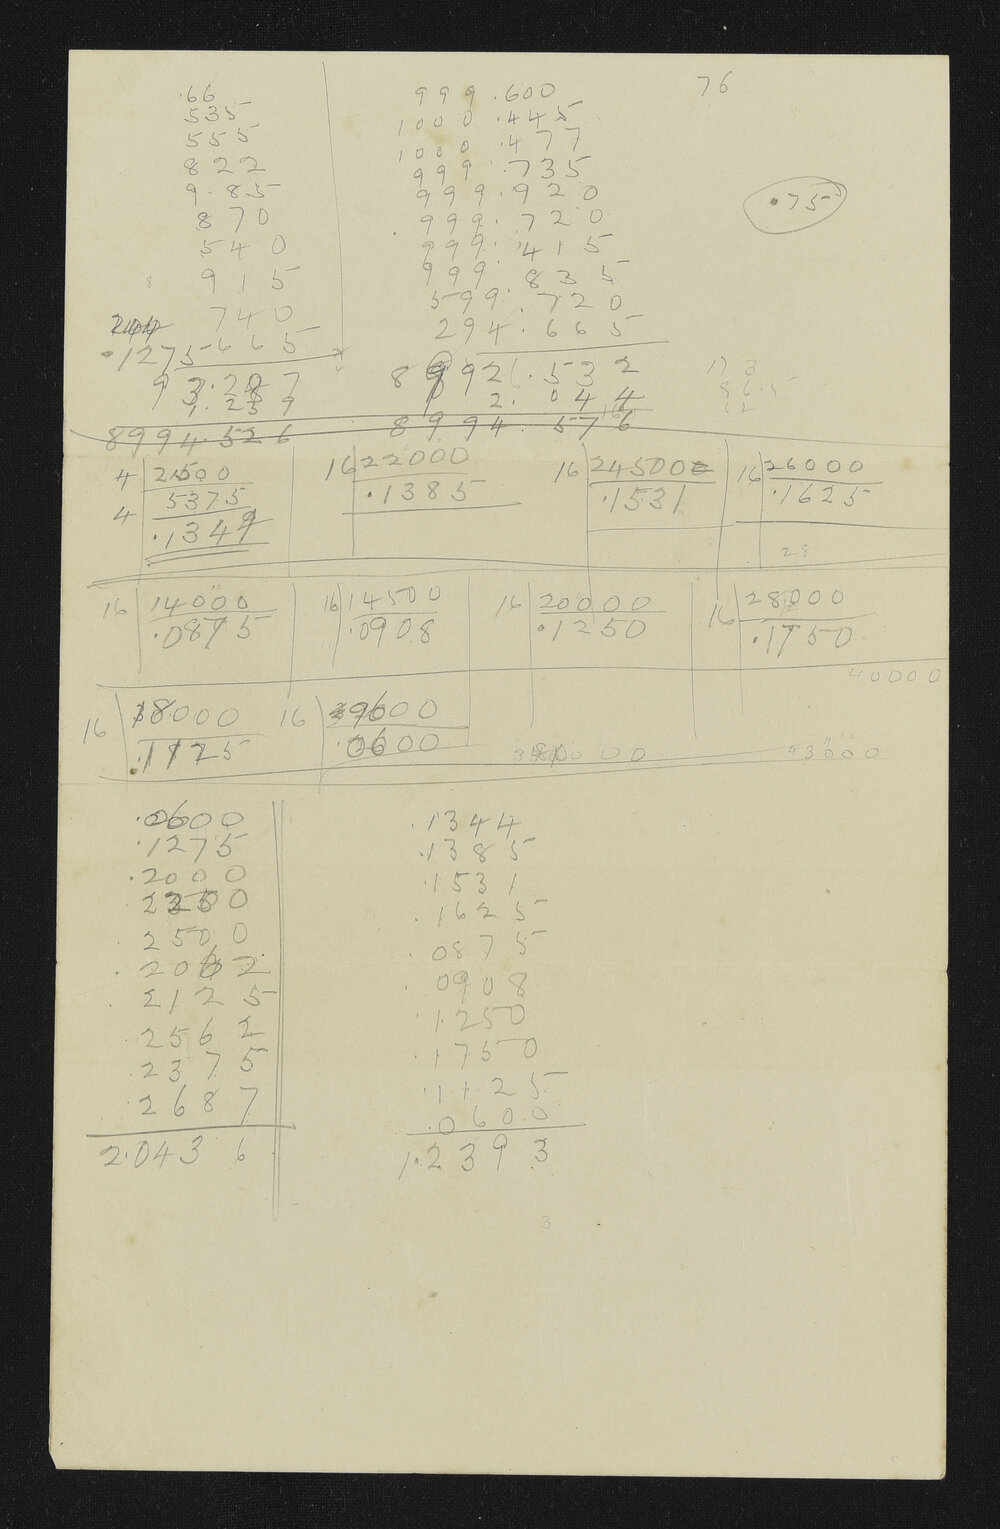 .66
535
555
822
9.85
870
540
915
740
.1275 665
1.239
8994.526
999.600
1000.445
1000.477
999.735
999.920
999.720
999.415
999.835
599.720
294.665
8992.532
2.044
8994.576
76
.75
4 21500
5375
4
.1344
16 22000
.1385
16 24500
.1531
16 26000
.1625
28
16 14000
.0875
16 14500
.0908
16 20000
.1250
16 28000
.1750
40000
16 18000
.1125
16 9600
.0600
43000
.0600
.1275
.2000
2250
2500
.2062
.2125
.2562
.2375
.2687
2.0436
.1344
.1385
.1531
.1625
.0875
.0908
.1250
.1750
.1125
.0600
1.2393
3